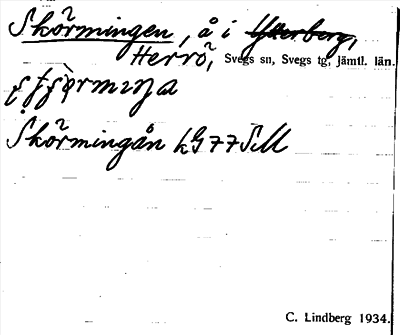 Skörmingen, å i Ytterberg,
Herrö, Svegs sn, Svegs tg, Jämtl. län.
Skörmingån LG 77 SM
C. Lindberg 1934.